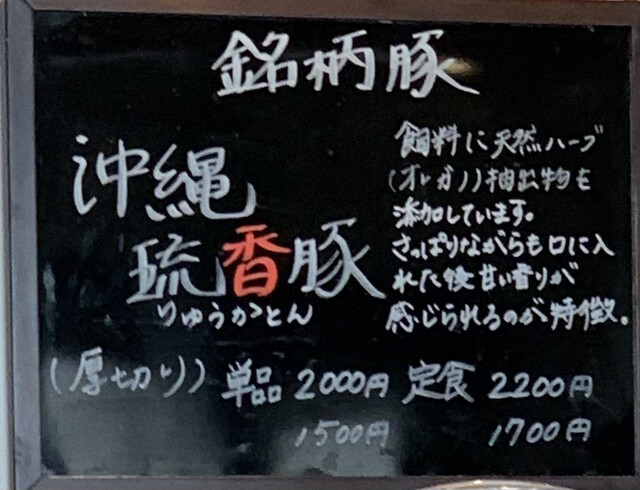 銘柄豚
沖縄
琉香豚
りゅうかとん
飼料に天然ハーブ
(オレガノ)抽出物を
添加しています。
さっぱりながらも口に入
れた後甘い香りが
感じられるのが特徴。
(厚切り) 単品 2000円 定食 2200円
1500円 1700円